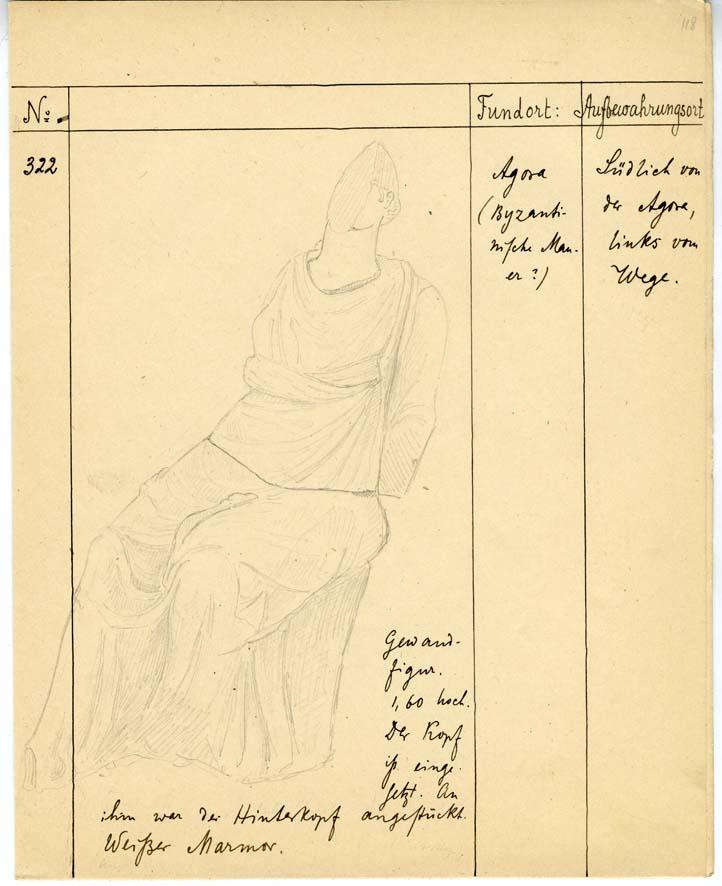 118
No: Fundort: Aufbewahrungsort
322
Agora
(Byzanti-
nische Mau-
er?)
Südlich von
der Agora,
links vom
Wege.
Gewand-
figur.
1,60 hoch.
Der Kopf
ist einge-
setzt. An
ihm war der Hinterkopf angestückt.
Weißer Marmor.